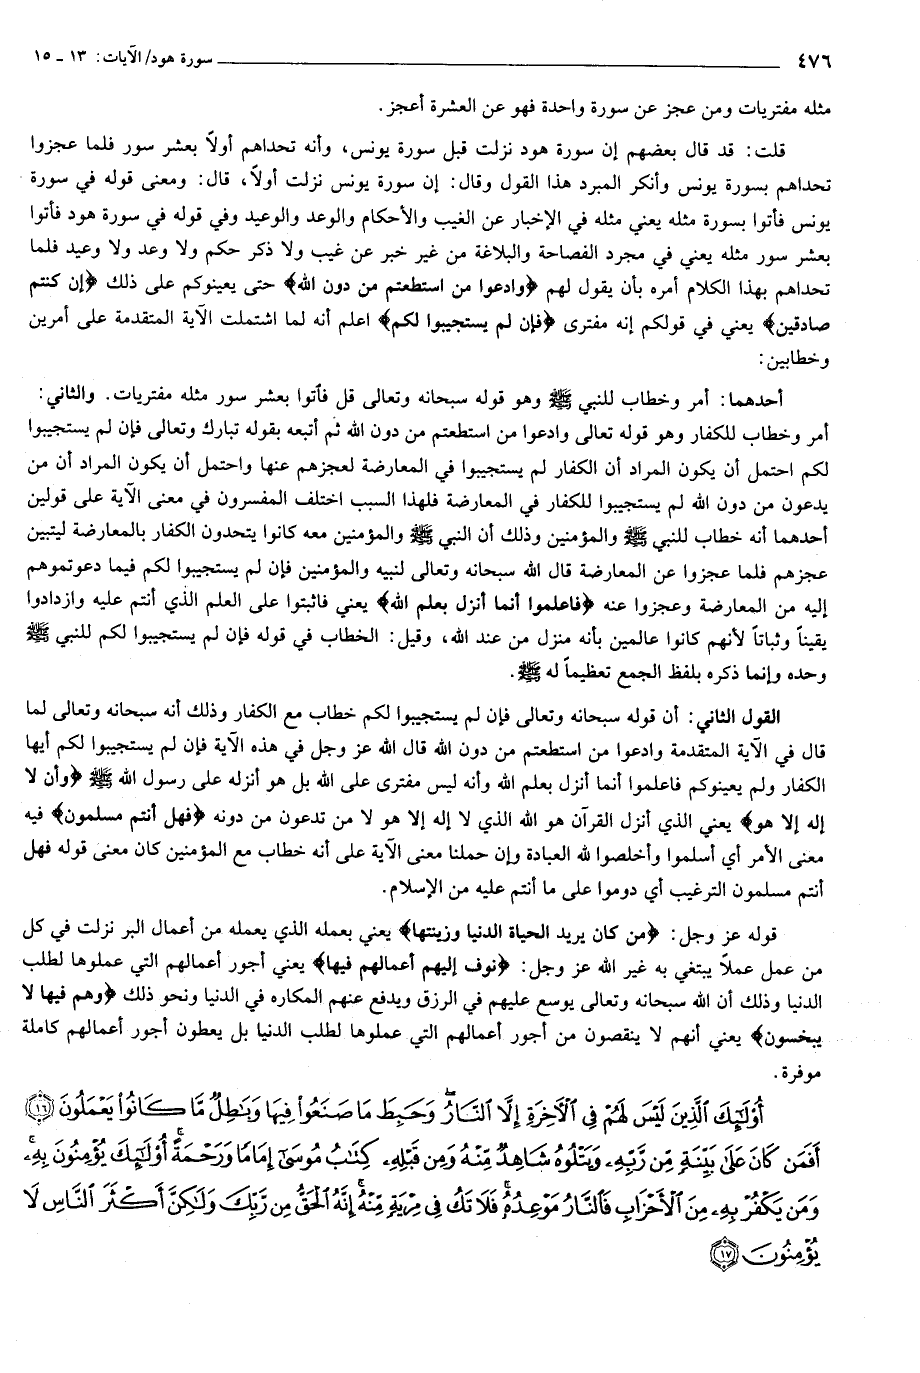 ٤٧٦ سورة هود/ الآيات: ١٣ ـ ١٥
مثله مفتريات ومن عجز عن سورة واحدة فهو عن العشرة أعجز.
قلت: قد قال بعضهم إن سورة هود نزلت قبل سورة يونس، وأنه تحداهم أولاً بعشر سور فلما عجزوا
تحداهم بسورة يونس وأنكر المبرد هذا القول وقال: إن سورة يونس نزلت أولاً، قال: ومعنى قوله في سورة
يونس فأتوا بسورة مثله يعني مثله في الإخبار عن الغيب والأحكام والوعد والوعيد وفي قوله في سورة هود فأتوا
بعشر سور مثله يعني في مجرد الفصاحة والبلاغة من غير خبر عن غيب ولا ذكر حكم ولا وعد ولا وعيد فلما
تحداهم بهذا الكلام أمره بأن يقول لهم ﴿وادعوا من استطعتم من دون الله﴾ حتى يعينوكم على ذلك ﴿إن كنتم
صادقين﴾ يعني في قولكم إنه مفترى ﴿فإن لم يستجيبوا لكم﴾ اعلم أنه لما اشتملت الآية المتقدمة على أمرين
وخطابين:
أحدهما: أمر وخطاب للنبي ﷺ وهو قوله سبحانه وتعالى قل فأتوا بعشر سور مثله مفتريات. والثاني:
أمر وخطاب للكفار وهو قوله تعالى وادعوا من استطعتم من دون الله ثم أتبعه بقوله تبارك وتعالى فإن لم يستجيبوا
لكم احتمل أن يكون المراد أن الكفار لم يستجيبوا في المعارضة لعجزهم عنها واحتمل أن يكون المراد أن من
يدعون من دون الله لم يستجيبوا للكفار في المعارضة فلهذا السبب اختلف المفسرون في معنى الآية على قولين
أحدهما أنه خطاب للنبي ﷺ والمؤمنين وذلك أن النبي ﷺ والمؤمنين معه كانوا يتحدون الكفار بالمعارضة ليتبين
عجزهم فلما عجزوا عن المعارضة قال الله سبحانه وتعالى لنبيه والمؤمنين فإن لم يستجيبوا لكم فيما دعوتموهم
إليه من المعارضة وعجزوا عنه ﴿فاعلموا أنما أنزل بعلم الله﴾ يعني فاثبتوا على العلم الذي أنتم عليه وازدادوا
يقيناً وثباتاً لأنهم كانوا عالمين بأنه منزل من عند الله، وقيل: الخطاب في قوله فإن لم يستجيبوا لكم للنبي ﷺ
وحده وإنما ذكره بلفظ الجمع تعظيماً له ﷺ.
القول الثاني: أن قوله سبحانه وتعالى فإن لم يستجيبوا لكم خطاب مع الكفار وذلك أنه سبحانه وتعالى لما
قال في الآية المتقدمة وادعوا من استطعتم من دون الله قال الله عز وجل في هذه الآية فإن لم يستجيبوا لكم أيها
الكفار ولم يعينوكم فاعلموا أنما أنزل بعلم الله وأنه ليس مفترى على الله بل هو أنزله على رسول الله ﷺ ﴿وأن لا
إله إلا هو﴾ يعني الذي أنزل القرآن هو الله الذي لا إله إلا هو لا من تدعون من دونه ﴿فهل أنتم مسلمون﴾ فيه
معنى الأمر أي أسلموا وأخلصوا لله العبادة وإن حملنا معنى الآية على أنه خطاب مع المؤمنين كان معنى قوله فهل
أنتم مسلمون الترغيب أي دوموا على ما أنتم عليه من الإسلام.
قوله عز وجل: ﴿من كان يريد الحياة الدنيا وزينتها﴾ يعني بعمله الذي يعمله من أعمال البر نزلت في كل
من عمل عملاً يبتغي به غير الله عز وجل: ﴿نوف إليهم أعمالهم فيها﴾ يعني أجور أعمالهم التي عملوها لطلب
الدنيا وذلك أن الله سبحانه وتعالى يوسع عليهم في الرزق ويدفع عنهم المكاره في الدنيا ونحو ذلك ﴿وهم فيها لا
يبخسون﴾ يعني أنهم لا ينقصون من أجور أعمالهم التي عملوها لطلب الدنيا بل يعطون أجور أعمالهم كاملة
موفرة.
أُوْلَٰٓئِكَ ٱلَّذِينَ لَيْسَ لَهُمْ فِى ٱلْأَخِرَةِ إِلَّا ٱلنَّارُ وَحَبِطَ مَا صَنَعُواْ فِيهَا وَبَٰطِلٌ مَّا كَانُواْ يَعْمَلُونَ ﴿١٦﴾
أَفَمَن كَانَ عَلَىٰ بَيِّنَةٍ مِّن رَّبِّهِۦ وَيَتْلُوهُ شَاهِدٌ مِّنْهُ وَمِن قَبْلِهِۦ كِتَٰبُ مُوسَىٰٓ إِمَامًا وَرَحْمَةً أُوْلَٰٓئِكَ يُؤْمِنُونَ بِهِۦ
وَمَن يَكْفُرْ بِهِۦ مِنَ ٱلْأَحْزَابِ فَٱلنَّارُ مَوْعِدُهُۥ فَلَا تَكُ فِى مِرْيَةٍ مِّنْهُ إِنَّهُ ٱلْحَقُّ مِن رَّبِّكَ وَلَٰكِنَّ أَكْثَرَ ٱلنَّاسِ لَا
يُؤْمِنُونَ ﴿١٧﴾